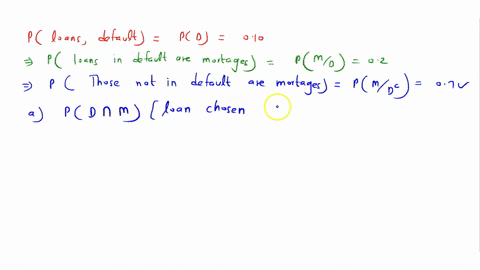 P( loans, default) = P(D) = 0.10
⇒ P( loans in default are mortages) = P(M/D) = 0.2
⇒ P( Those not in default are mortages) = P(M/Dᶜ) = 0.7 ✓
a) P(D ∩ M) [loan chosen